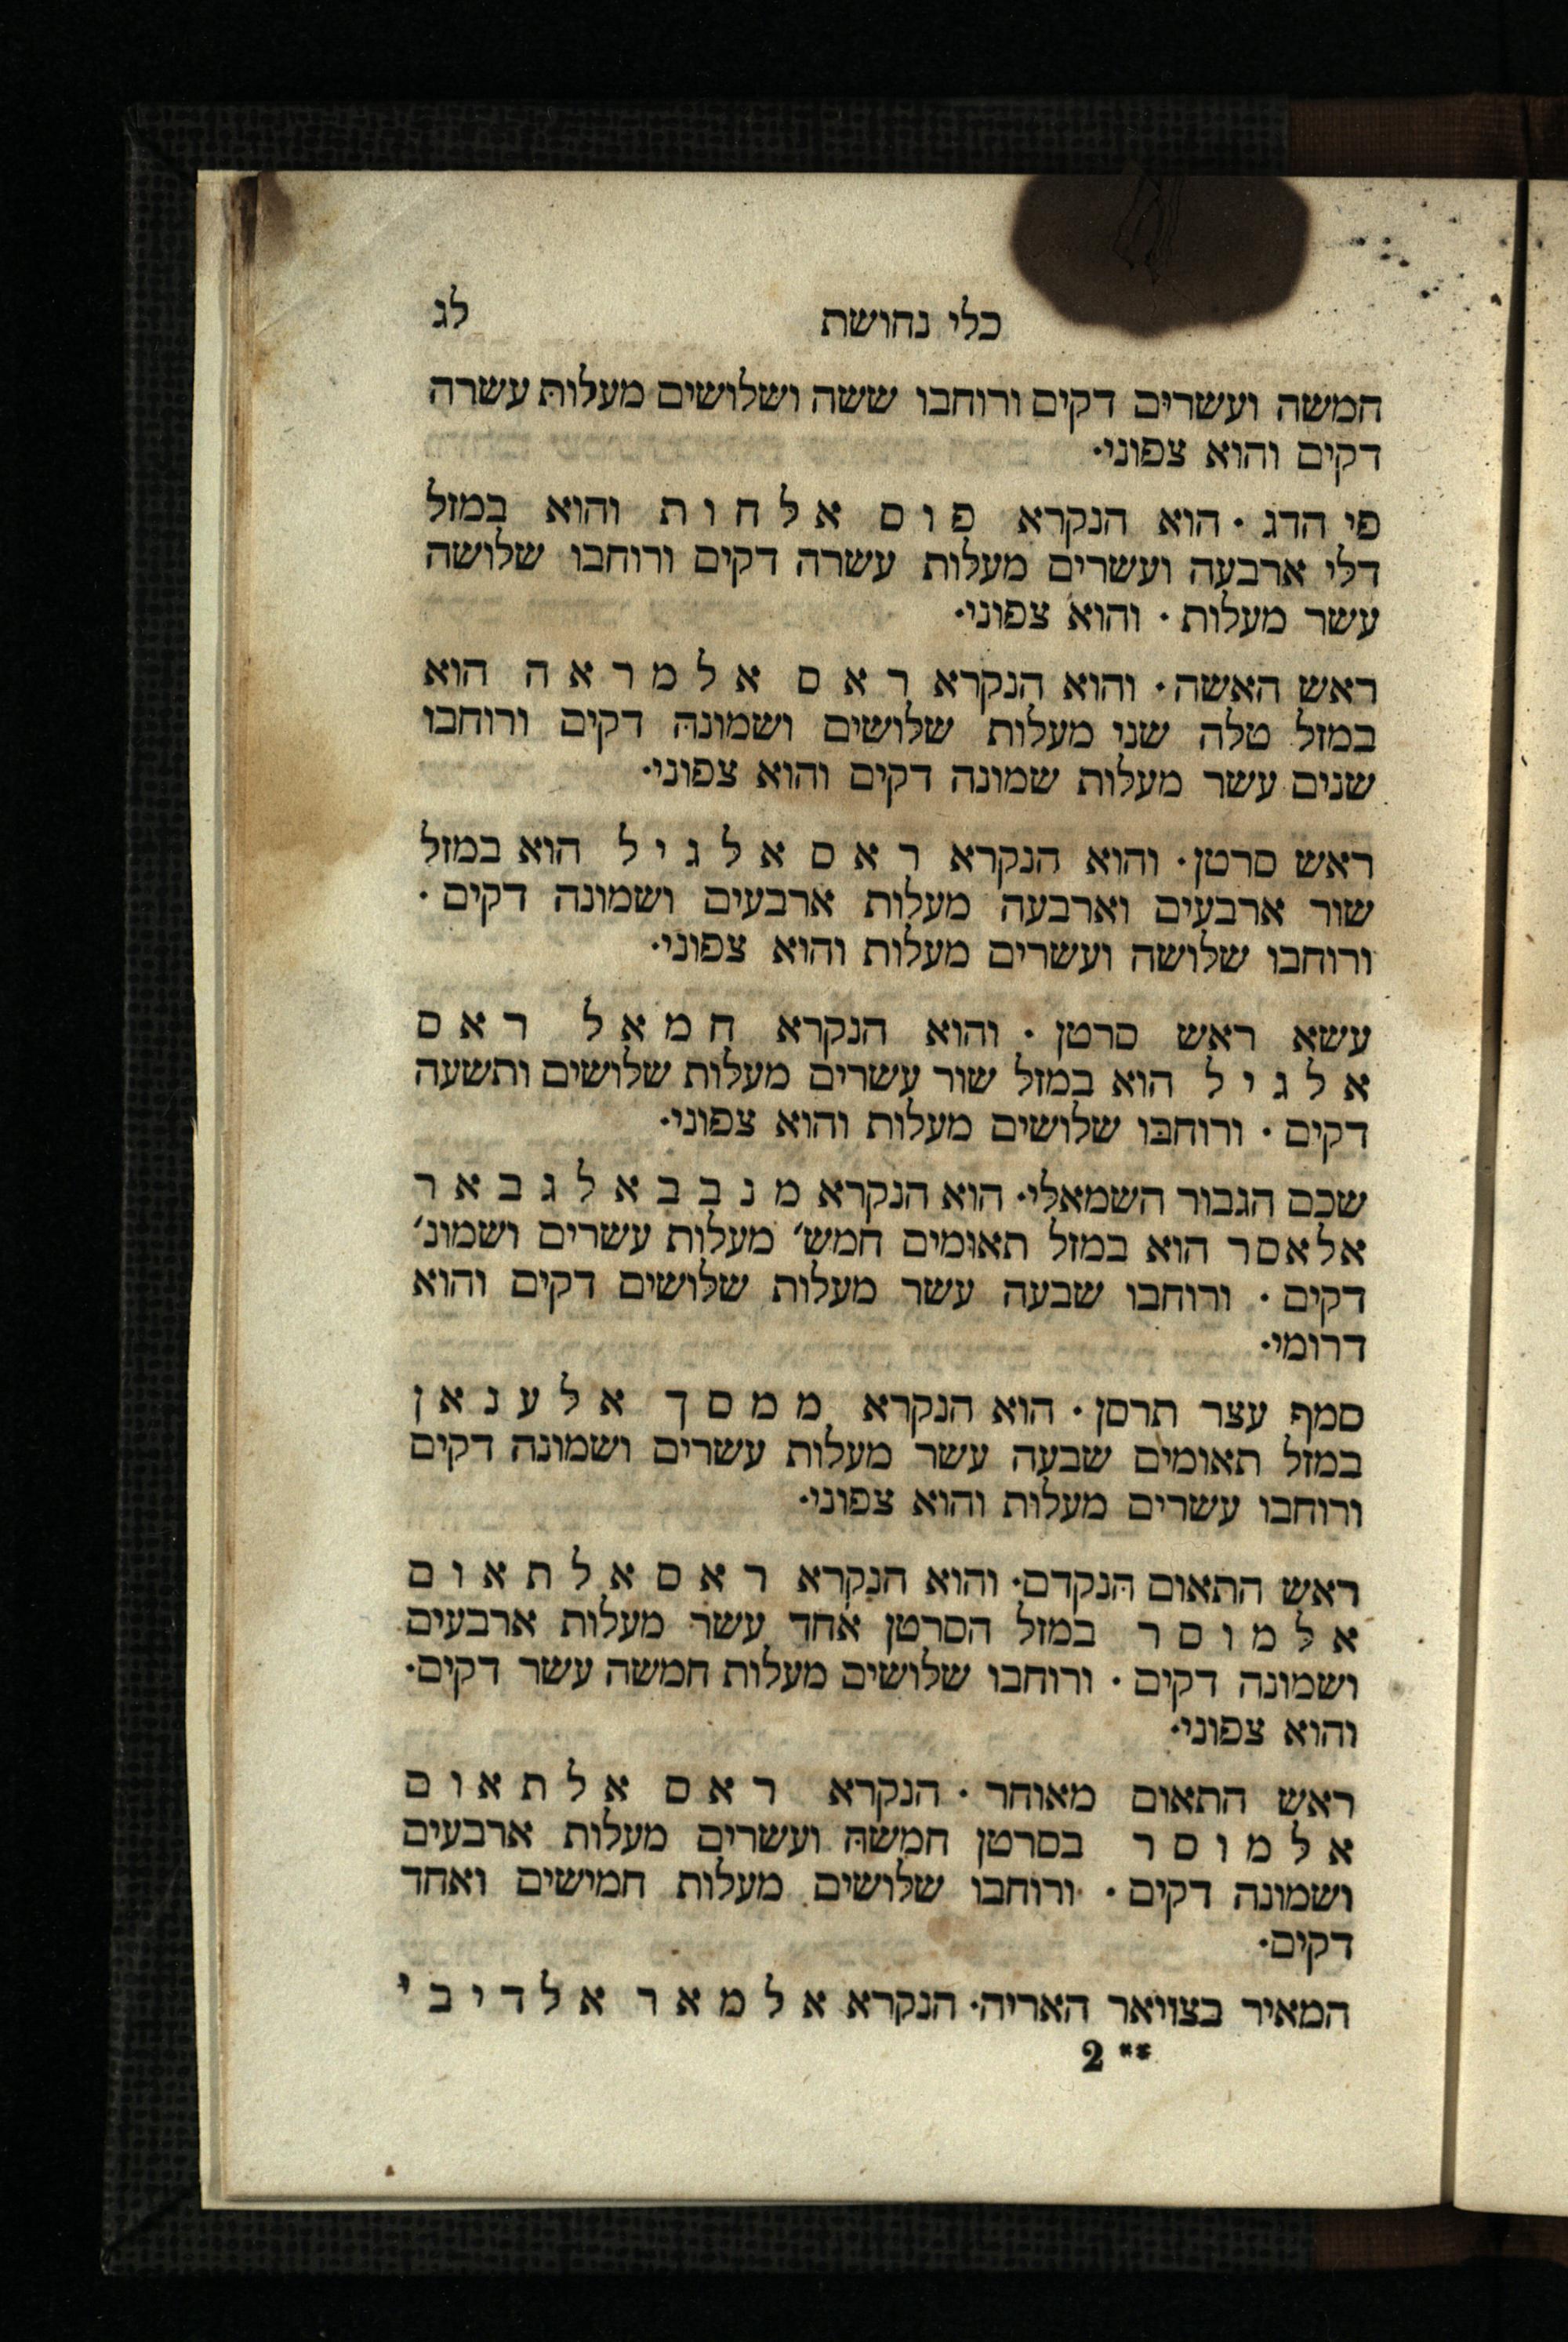 כלי נחושת לג
חמשה ועשרים דקים ורוחבו ששה ושלושים מעלות עשרה
דקים והוא צפוני·
פי הדג · הוא הנקרא פ ו ם א ל ח ו ת והוא במזל
דלי ארבעה ועשרים מעלות עשרה דקים ורוחבו שלושה
עשר מעלות · והוא צפוני·
ראש האשה· והוא הנקרא ר א ס א ל מ ר א ה הוא
במזל טלה שני מעלות שלושים ושמונה דקים ורוחבו
שנים עשר מעלות שמונה דקים והוא צפוני·
ראש סרטן· והוא הנקרא ר א ס א ל ג י ל הוא במזל
שור ארבעים וארבעה מעלות ארבעים ושמונה דקים ·
ורוחבו שלושה ועשרים מעלות והוא צפוני·
עשא ראש סרטן · והוא הנקרא ח מ א ל ר א ס
א ל ג י ל הוא במזל שור עשרים מעלות שלושים ותשעה
דקים · ורוחבו שלושים מעלות והוא צפוני·
שכם הגבור השמאלי· הוא הנקרא מ נ כ ב א ל ג ב א ר
אלאסר הוא במזל תאומים חמש׳ מעלות עשרים ושמונ׳
דקים · ורוחבו שבעה עשר מעלות שלושים דקים והוא
דרומי·
סמף עצר תרסן · הוא הנקרא מ מ ס ך א ל ע נ א ן
במזל תאומים שבעה עשר מעלות עשרים ושמונה דקים
ורוחבו עשרים מעלות והוא צפוני·
ראש התאום הנקדם· והוא הנקרא ר א ס א ל ת א ו ם
א ל מ ו ס ר במזל הסרטן אחד עשר מעלות ארבעים
ושמונה דקים · ורוחבו שלושים מעלות חמשה עשר דקים·
והוא צפוני·
ראש התאום מאוחר · הנקרא ר א ס א ל ת א ו ם
א ל מ ו ס ר בסרטן חמשה ועשרים מעלות ארבעים
ושמונה דקים · ורוחבו שלושים מעלות חמישים ואחד
דקים·
המאיר בצוויאר האריה· הנקרא א ל מ א ר א ל ד י ב י
** 2